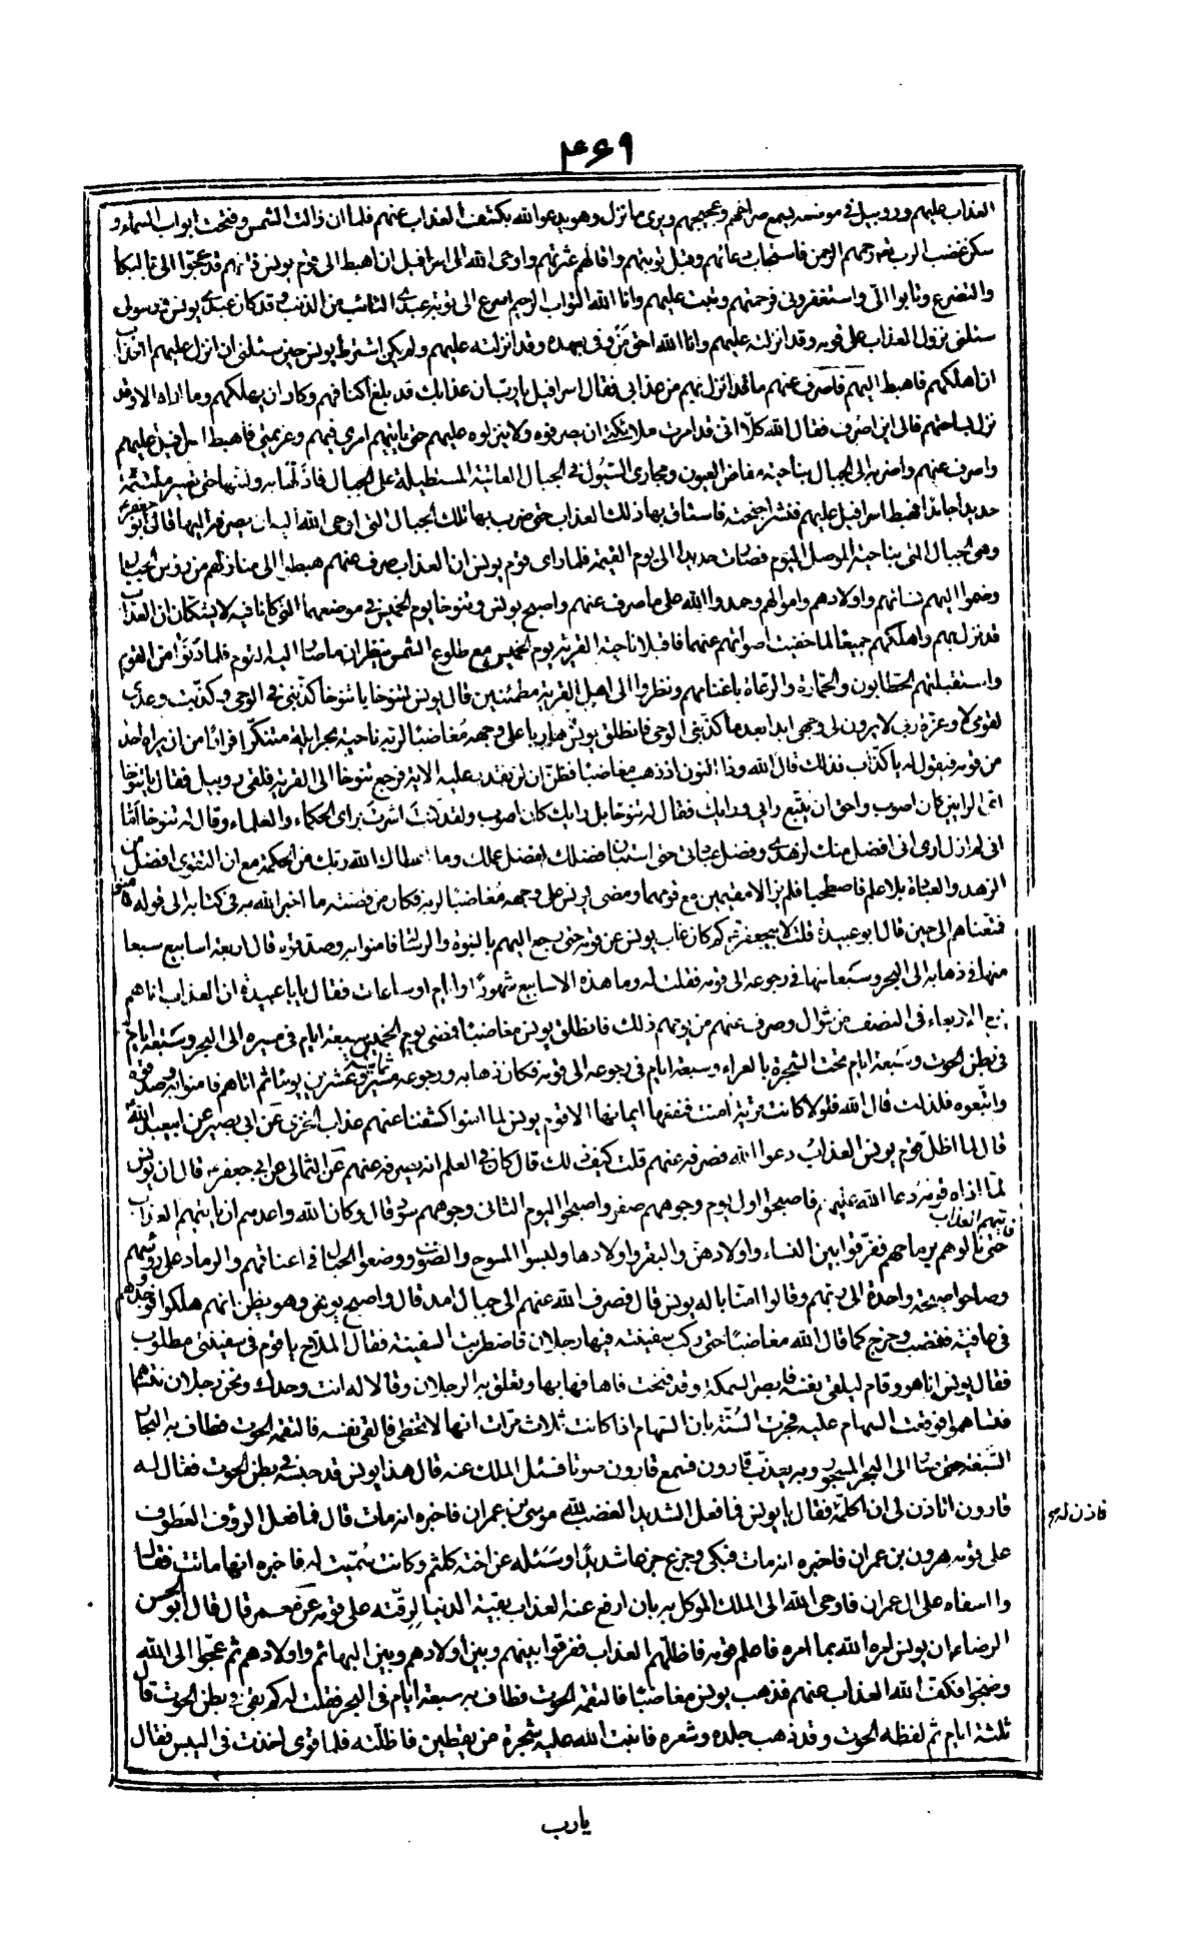 ٤٦٩
العذاب عليهم وروبيل في موضعه يسمع صراخهم وعجيجهم ويرى ما نزل وهو يدعو الله بكشف العذاب عنهم فلما ان زالت الشمس وفتحت ابواب السماء و
سكن غضب الرب تعالى رحمهم الرحمن فاستجاب دعائهم وقبل توبتهم واقالهم عثرتهم واوحى الله الى اسرافيل ان اهبط الى قوم يونس فانهم قد عجوا الى بالبكاء
والتضرع وتابوا الى واستغفروني فرحمتهم وتبت عليهم وانا الله التواب الرحيم اسرع الى توبة عبدي التائب من الذنب وقد كان عبدي يونس ورسولي
سئلني نزول العذاب على قومه وقد انزلته عليهم وانا الله احق من وفى بعهده وقد انزلته عليهم ولم يكن اشترط يونس حين سئلني ان انزل عليهم العذاب
ان اهلكهم فاهبط اليهم فاصرف عنهم ما قد انزل بهم من عذابي فقال اسرافيل يا رب ان عذابك قد بلغ اكتافهم وكاد ان يهلكهم وما اراه الا وقد
نزل بساحتهم فالى اين اصرف فقال الله كلا انى قد امرت ملائكتي ان يصرفوه ولا ينزلوه عليهم حتى ياتيهم امري فيهم وعزيمتي فاهبط اسرافيل عليهم
واصرف عنهم واضرب به الى الجبال بناحية مفاض العيون ومجاري السيول في الجبال العاتية المستطيلة على الجبال فاذلها به ولينها حتى تصير ملتئمة
حديدا جامدا فهبط اسرافيل عليهم فنشر اجنحته فاستاق بها ذلك العذاب حتى ضرب بها تلك الجبال التي اوحى الله اليه ان يصرفه اليها قال ابو جعفر ع
وهي الجبال التي بناحية الموصل اليوم فصارت حديدا الى يوم القيمة فلما راى قوم يونس ان العذاب صرف عنهم هبطوا الى منازلهم من رؤس الجبال
وضموا اليهم نسائهم واولادهم واموالهم وحمدوا الله على ما صرف عنهم واصبح يونس وتنوخا يوم الخميس في موضعهما الذي كانا فيه لا يشكان ان العذاب
قد نزل بهم واهلكهم جميعا لما خفيت اصواتهم عنهما فاقبلا ناحية القرية يوم الخميس مع طلوع الشمس ينظران ما صار اليه القوم فلما دنوا من القوم
واستقبلتهم الحطابون والحمارة والرعاة باغنامهم ونظروا الى اهل القرية مطمئنين قال يونس لتنوخا يا تنوخا كذبني في الوحي وكذبت وعدي
لقومي لا وعزة ربي لا يرون لي وجها ابدا بعد ما كذبني الوحي فانطلق يونس هاربا على وجهه مغاضبا لربه ناحية بحر ايلة متنكرا فرارا من ان يراه احد
من قومه فيقول له يا كذاب فلذلك قال الله وذا النون اذ ذهب مغاضبا فظن ان لن نقدر عليه الاية فرجع تنوخا الى القرية فلقى روبيل فقال يا تنوخا
اي الرايين كان اصوب واحق ان يتبع رايي او رايك فقال له تنوخا بل رايك كان اصوب ولقد كنت اشرت براى الحكماء والعلماء وقال له تنوخا اما
انى لم ازل ارى انى افضل منك لزهدي وفضل عبادتي حتى استبان فضلك لفضل علمك وما اعطاك الله ربك من الحكمة مع ان التقوى افضل من
الزهد والعبادة بلا علم فاصطحبا فلم يزالا مقيمين مع قومهما ومضى يونس على وجهه مغاضبا لربه فكان من قصته ما اخبر الله به في كتابه الى قوله فامنوا
فمتعناهم الى حين قال ابو عبيدة قلت لابي جعفر ع كم كان غاب يونس عن قومه حتى رجع اليهم بالنبوة والرسالة فامنوا به وصدقوه قال اربعة اسابيع سبعا
منها في ذهابه الى البحر وسبعا منها في رجوعه الى قومه فقلت له وما هذه الاسابيع شهورا او ايام او ساعات فقال يا ابا عبيدة ان العذاب اتاهم
يوم الاربعاء في النصف من شوال وصرف عنهم من يومهم ذلك فانطلق يونس مغاضبا فمضى يوم الخميس سبعة ايام في مسيره الى البحر وسبعة ايام
في بطن الحوت وسبعة ايام تحت الشجرة بالعراء وسبعة ايام في رجوعه الى قومه فكان ذهابه ورجوعه ثمانية وعشرين يوما ثم اتاهم فامنوا به وصدقوه
واتبعوه فلذلك قال الله فلولا كانت قرية امنت فنفعها ايمانها الا قوم يونس لما امنوا كشفنا عنهم عذاب الخزي عن ابي بصير عن ابي عبد الله ع
قال لما اظل قوم يونس العذاب دعوا الله فصرفه عنهم قلت كيف ذلك قال كان في العلم انه يصرفه عنهم عن الثمالي عن ابي جعفر ع قال ان يونس
لما اذاه قومه دعا الله عليهم فاصبحوا اول يوم وجوههم صفر واصبحوا اليوم الثاني وجوههم سود قال وكان الله واعدهم ان ياتيهم العذاب
فاتيهم العذاب
حتى نالوهم برماحهم ففرقوا بين النساء واولادهن والبقر واولادها ولبسوا المسوح والصوف ووضعوا الحبال في اعناقهم والرماد على رؤسهم
وصاحوا صيحة واحدة الى ربهم وقالوا امنا باله يونس قال فصرف الله عنهم الى جبال امد قال واصبح يونس وهو يظن انهم هلكوا فوجدهم
في عافية فغضب وخرج كما قال الله مغاضبا حتى ركب سفينة فيها رجلان فاضطربت السفينة فقال الملاح يا قوم في سفينتي مطلوب
فقال يونس انا هو وقام ليلقى نفسه فابصر السمكة وقد فتحت فاها فهابها وتعلق به الرجلان وقالا له انت وحدك ونحن رجلان نتساهم
فتساهموا فوقعت السهام عليه فجرت السنة بان السهام اذا كانت ثلاث مرات انها لا تخطى فالقى نفسه فالتقمه الحوت فطاف به البحار
السبعة حتى صار الى البحر المسجور وبه يعذب قارون فسمع قارون صوتا فسئل الملك عنه قال هذا يونس قد حبسه في بطن الحوت فقال له
قارون اتاذن لي ان اكلمه فقال يا يونس فما فعل الشديد الغضب لله موسى بن عمران فاخبره انه مات قال فما فعل الرؤف العطوف
فاذن له
على قومه هرون بن عمران فاخبره انه مات فبكى وجزع جزعا شديدا وسئله عن اخته كلثم وكانت سميت له فاخبره انها ماتت فقال
وا اسفاه على ال عمران فاوحى الله الى الملك الموكل به بان ارفع عنه العذاب بقية الدنيا لرقته على قومه عن معمر قال قال ابو الحسن
الرضا ع ان يونس امره الله بما امره فاعلم قومه فاظلهم العذاب ففرقوا بينهم وبين اولادهم وبين البهائم واولادهم ثم عجوا الى الله
وضجوا فكف الله العذاب عنهم فذهب يونس مغاضبا فالتقمه الحوت فطاف به سبعة ايام في البحر فقلت له كم بقى في بطن الحوت قال
ثلثة ايام ثم لفظه الحوت وقد ذهب جلده وشعره فانبت الله عليه شجرة من يقطين فاظلته فلما قوى اخذت في اليبس فقال
يا رب